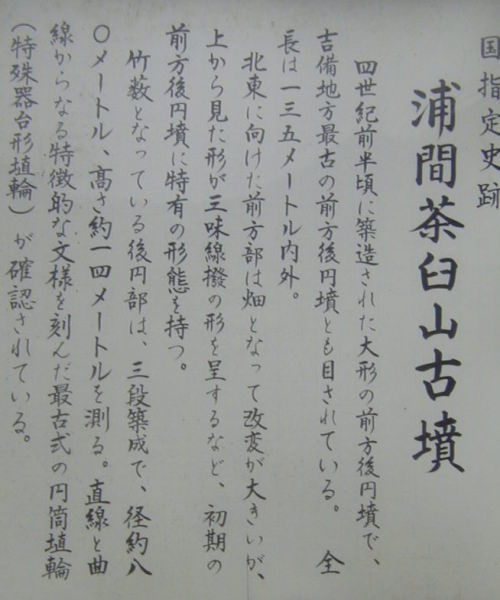 国指定史跡
浦間茶臼山古墳
四世紀前半頃に築造された大形の前方後円墳で、
吉備地方最古の前方後円墳とも目されている。 全
長は一三五メートル内外。
北東に向けた前方部は畑となって改変が大きいが、
上から見た形が三味線撥の形を呈するなど、初期の
前方後円墳に特有の形態を持つ。
竹薮となっている後円部は、三段築成で、径約八
〇メートル、高さ約一四メートルを測る。直線と曲
線からなる特徴的な文様を刻んだ最古式の円筒埴輪
(特殊器台形埴輪)が確認されている。